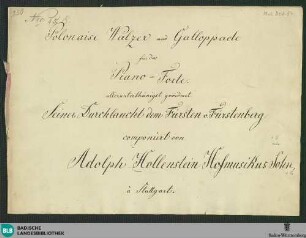 Polonaise Walzer und Galloppade
für das
Piano-Forte
Seiner Durchlaucht dem Fürsten v. Fürstenberg
componirt von
Adolph Hollenstein Hofmusikus Sohn
à Stuttgart.
BLB
BADISCHE
LANDESBIBLIOTHEK
Baden-Württemberg